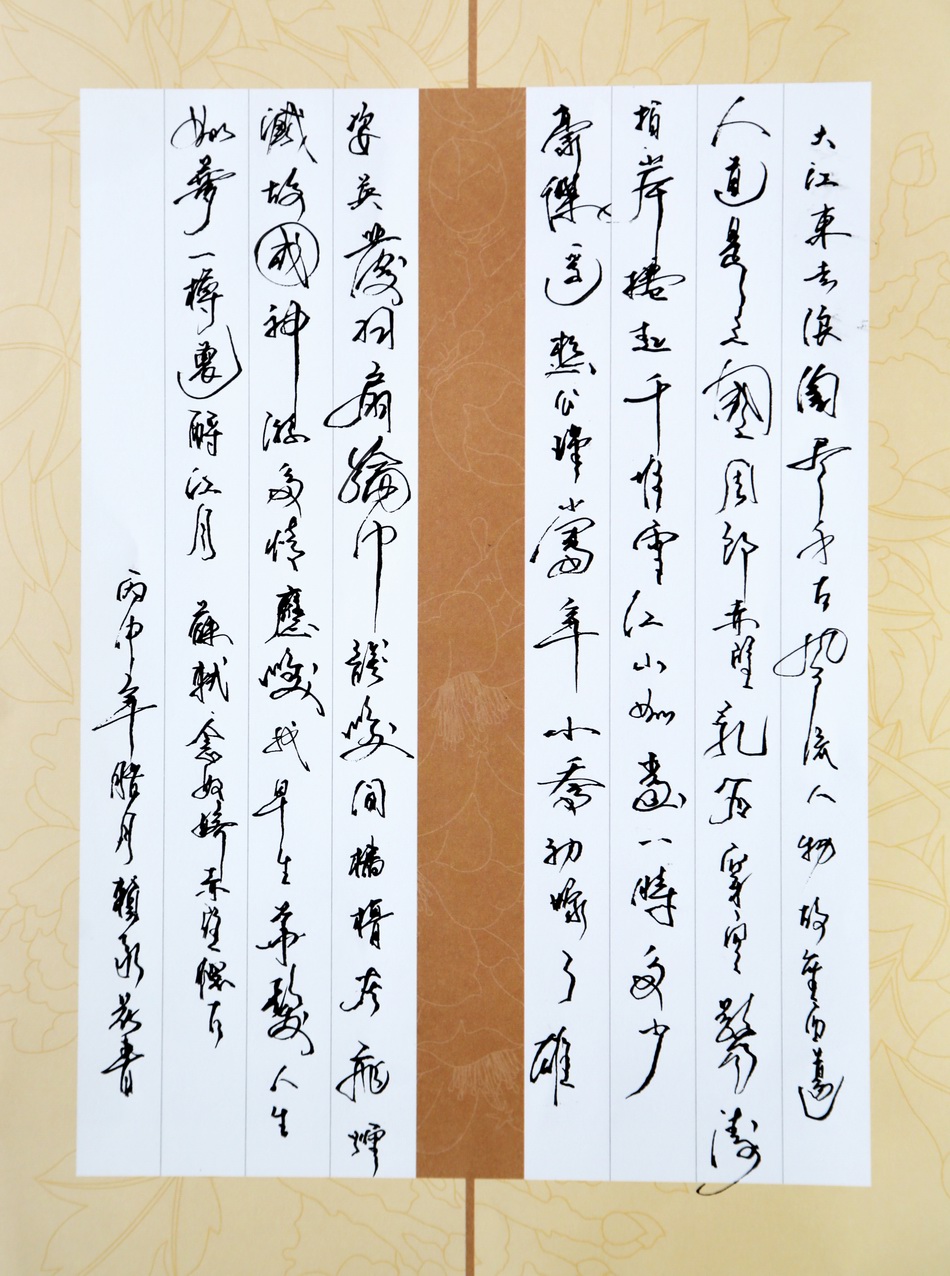 大江東去浪淘盡千古風流人物故壘西邊
人道是三國周郎赤壁亂石穿空驚濤
拍岸捲起千堆雪江山如畫一時多少
豪傑遙想公瑾當年小喬初嫁了雄
姿英發羽扇綸巾談笑間檣櫓灰飛煙
滅故國神游多情應笑我早生華髮人生
如夢一樽還酹江月 蘇軾念奴嬌赤壁懷古
丙申年腊月賴永書